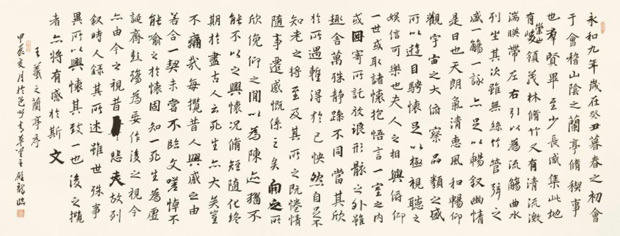 永和九年歲在癸丑暮春之初會
于會稽山陰之蘭亭脩稧事
也群賢畢至少長咸集此地
有崇山峻領茂林脩竹又有清流激
湍暎帶左右引以為流觴曲水
列坐其次雖無絲竹管絃之
盛一觴一詠亦足以暢叙幽情
是日也天朗氣清惠風和暢仰
觀宇宙之大俯察品類之盛
所以遊目騁懷足以極視聽之
娛信可樂也夫人之相與俯仰
一世或取諸懷抱悟言一室之內
或因寄所託放浪形骸之外雖
趣舍萬殊靜躁不同當其欣
於所遇蹔得於己快然自足不
知老之將至及其所之既惓情
隨事遷感慨係之矣向之所
欣俛仰之閒以為陳迹猶不
能不以之興懷況脩短隨化終
期於盡古人云死生亦大矣豈
不痛哉每攬昔人興感之由
若合一契未嘗不臨文嗟悼不
能喻之於懷固知一死生為虛
誕齊彭殤為妄作後之視今
亦由今之視昔悲夫故列
叙時人錄其所述雖世殊事
異所以興懷其致一也後之攬
者亦將有感於斯文
王羲之蘭亭序
甲辰